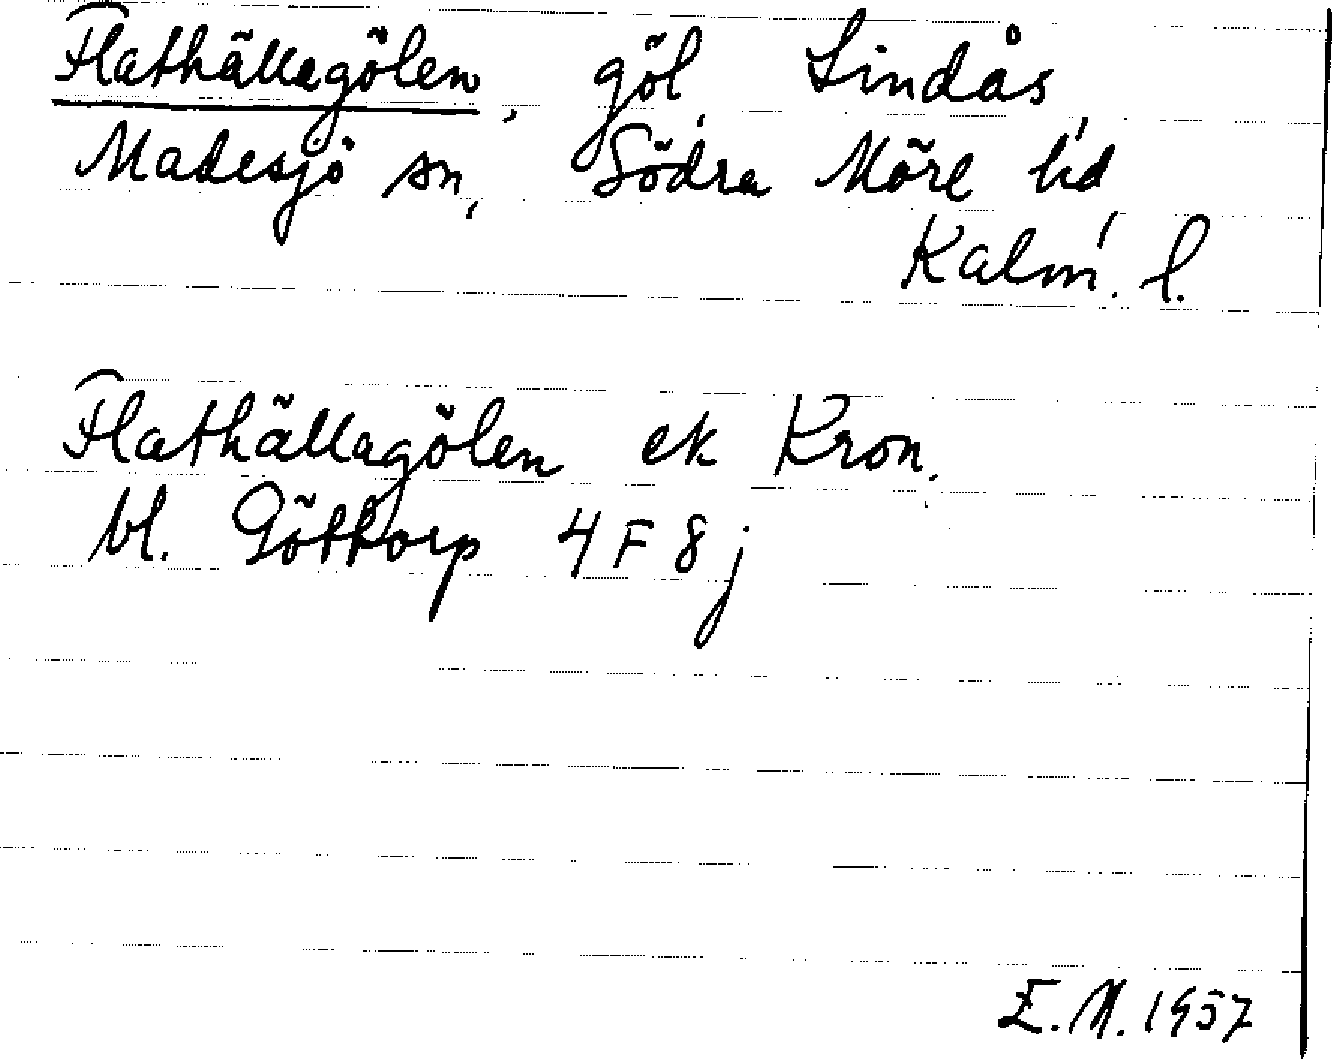 Flathällagölen, göl, Lindås,
Madesjö sn, Södra Möre hd,
Kalm. l.
Flathällagölen ek Kron.
bl. Göttorp 4 F 8 j
E.M. 1957